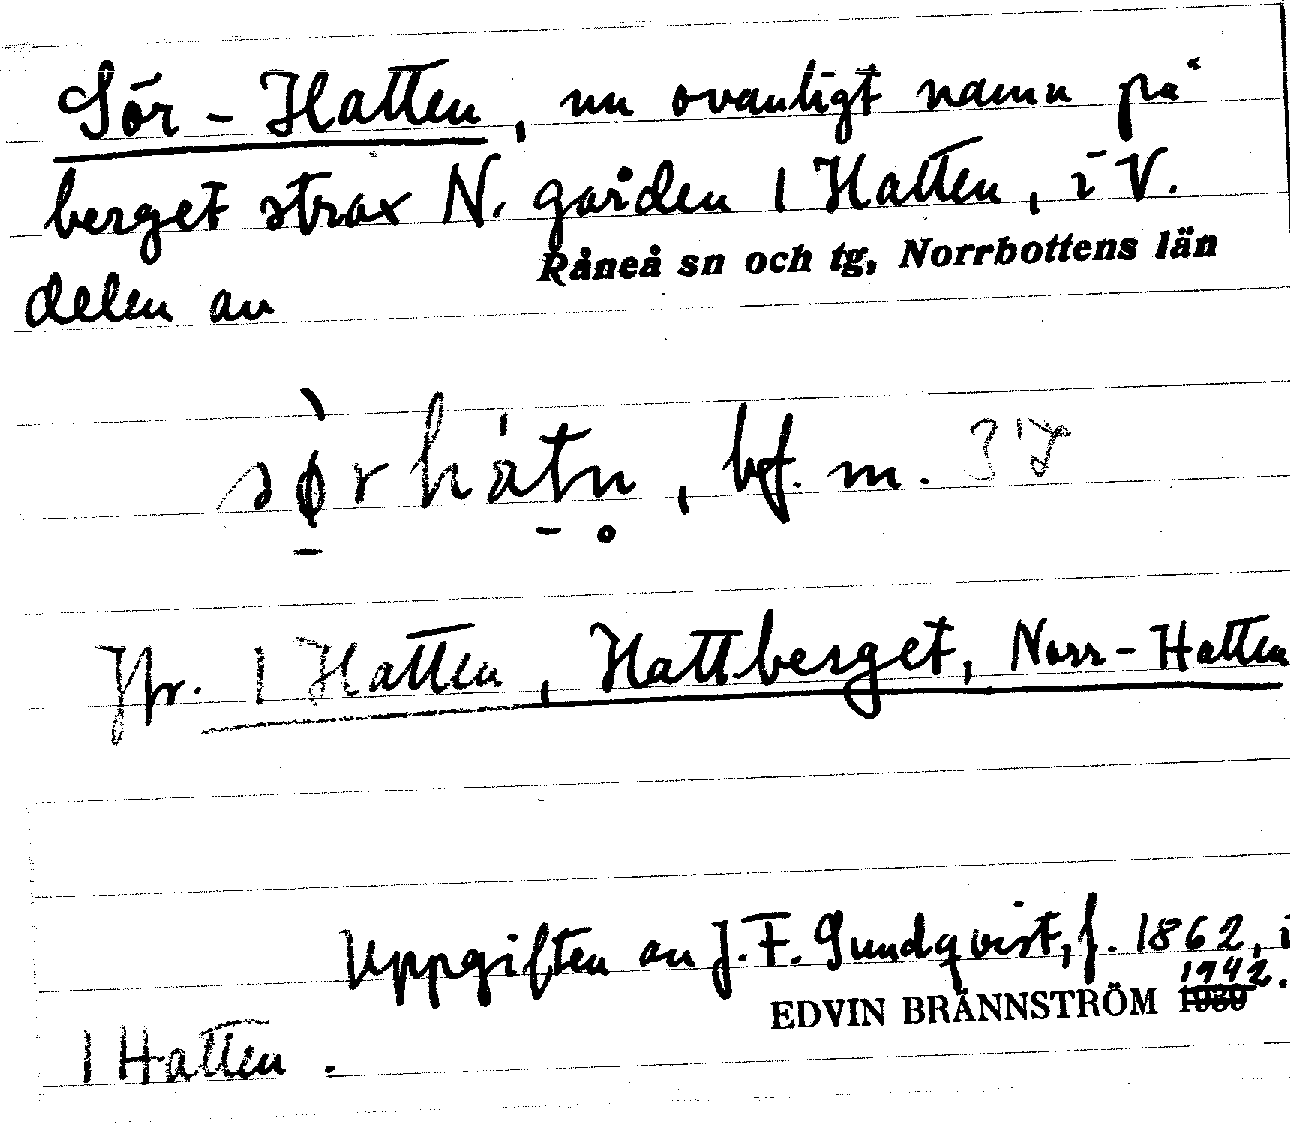 Sör-Hatten, nu ovanligt namn på
berget strax N. gården 1 Hatten, i V.
Råneå sn och tg, Norrbottens län
delen av
sø̀rhátn̥, bf. m.
Jfr. 1 Hatten, Hattberget, Norr-Hatten
Uppgiften av J. F. Sundqvist, f. 1862, i
EDVIN BRÄNNSTRÖM 1939 1942.
1 Hatten.